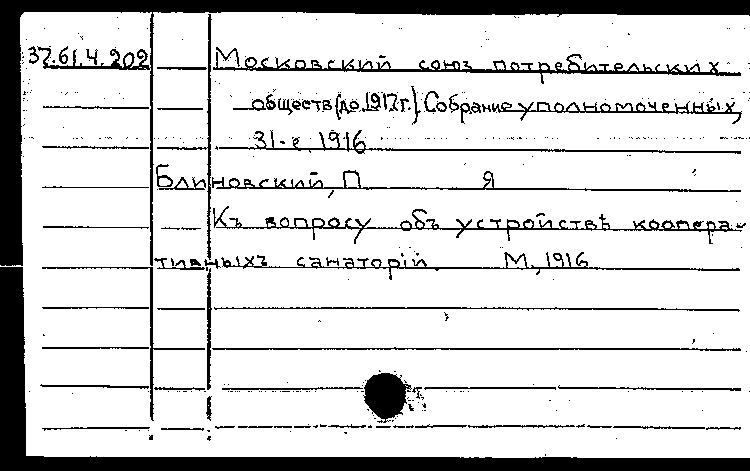 37.61.4.202 Московский союз потребительских
обществ (до 1917 г.). Собрание уполномоченных,
31-е, 1916
Блиновский, П Я
Къ вопросу объ устройствѣ коопера-
тивныхъ санаторій. М., 1916